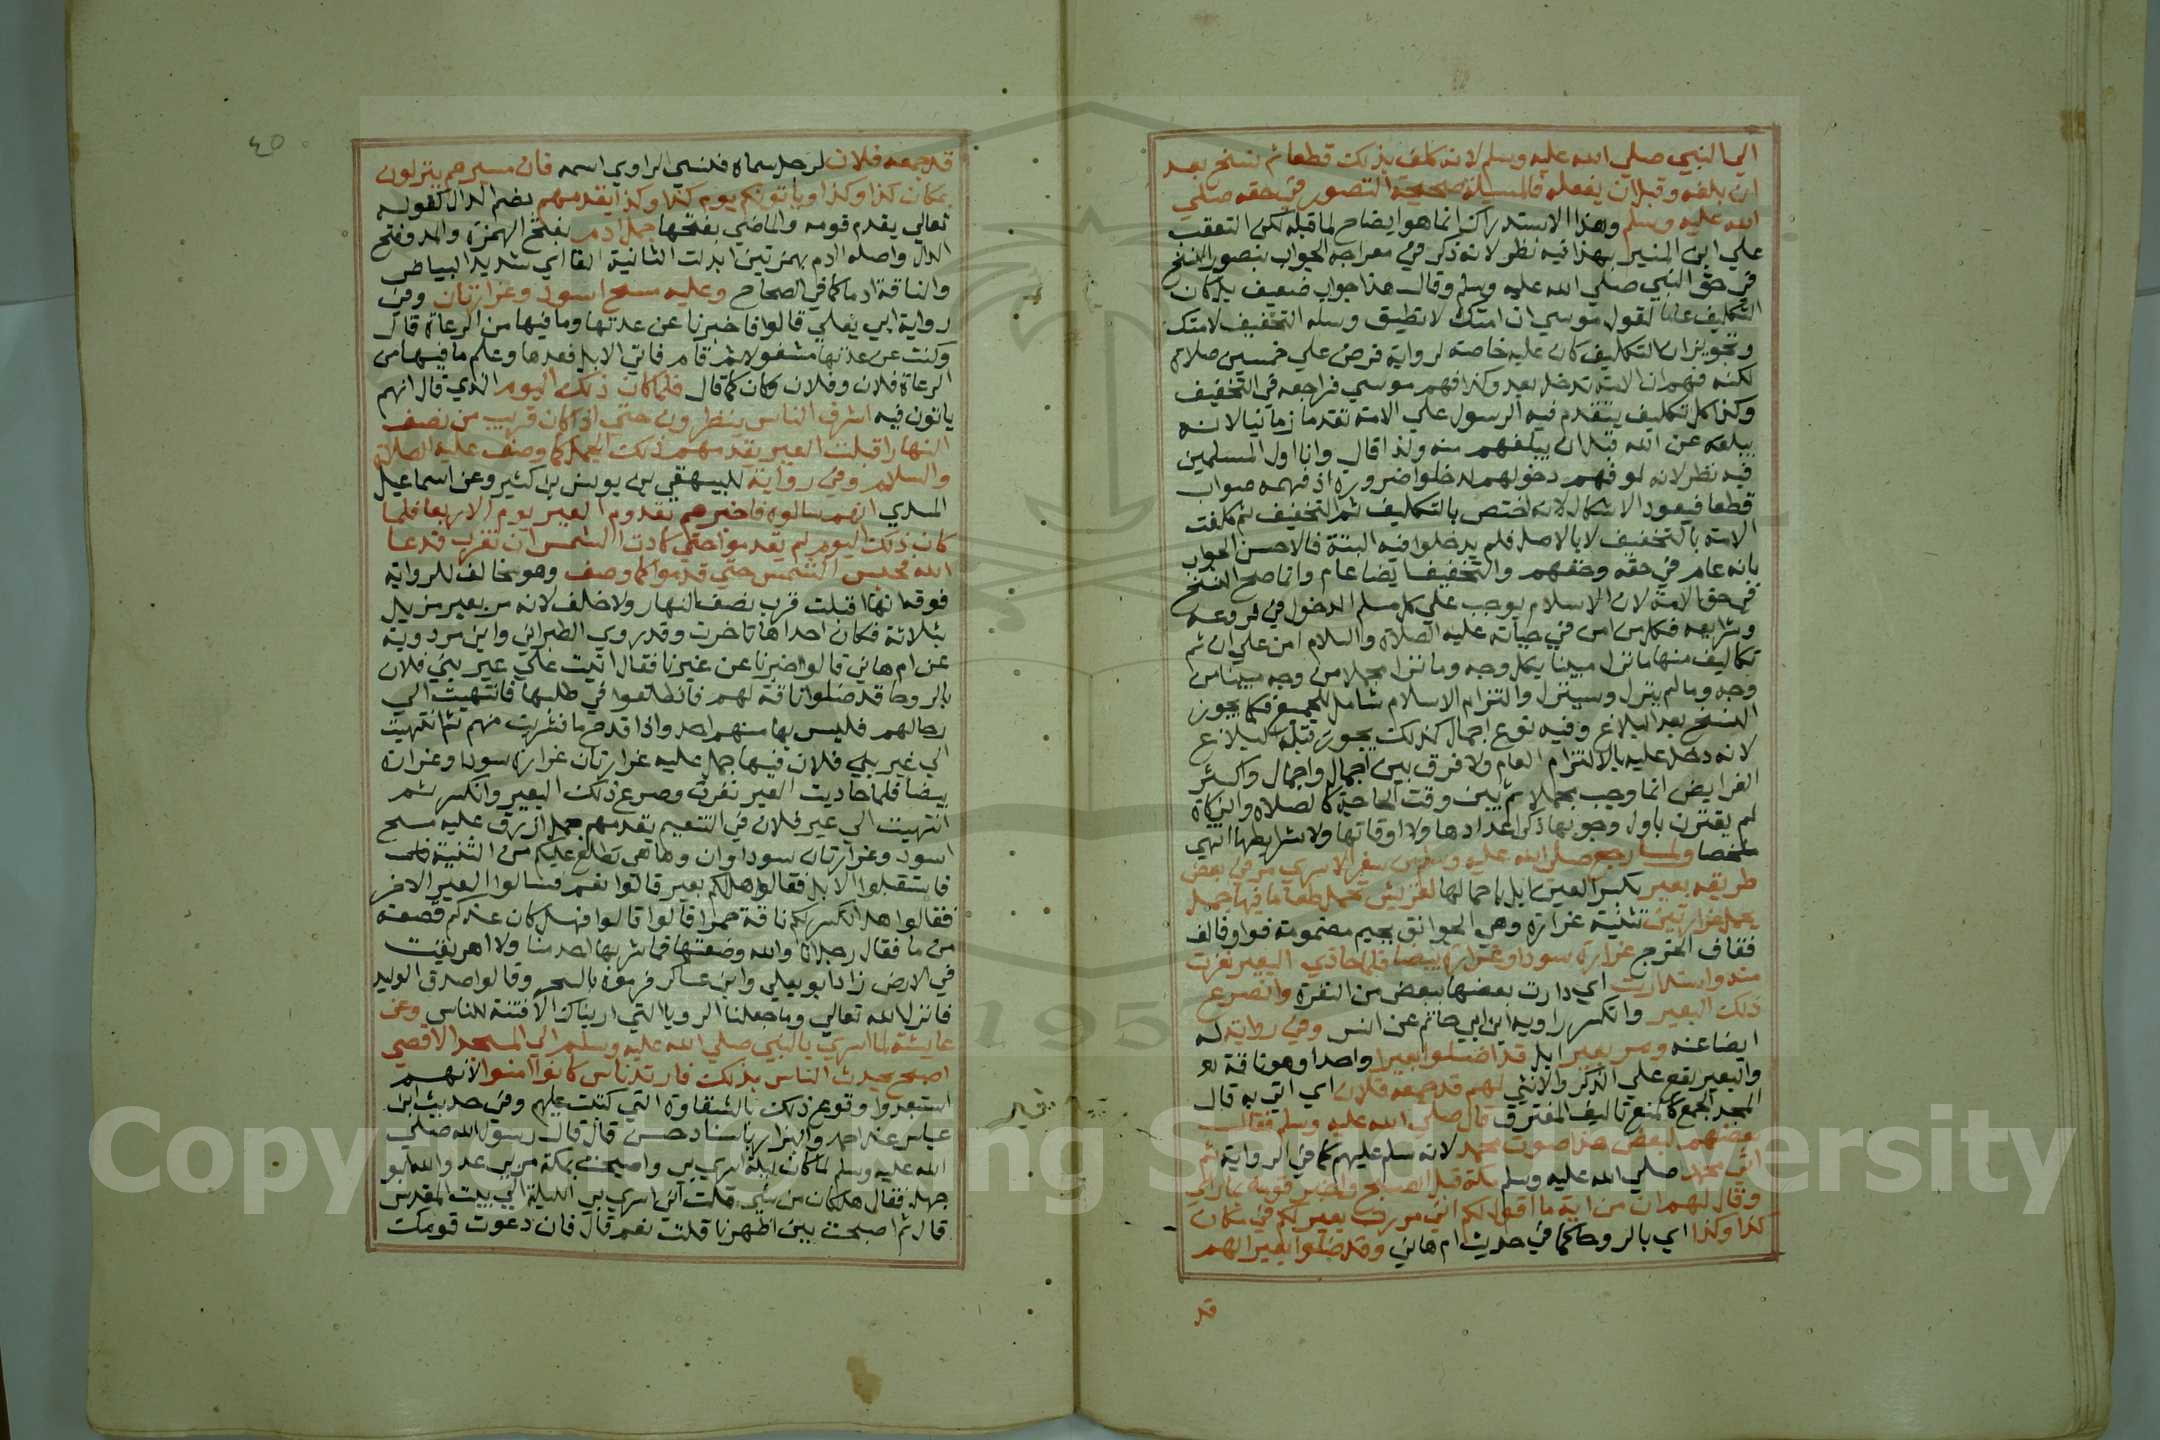 الي النبي صلي الله عليه وسلم لانه كلف بذلك قطعا ثم نسخ بعد
ان بلغه وقبل ان يفعله فالمسيلة صحيحة التصور في حقه صلي
الله عليه وسلم وهذا الاستدراك انما هو ايضاح لما قبله لكن التعقب
علي ابن المنير بهذا فيه نظر لانه ذكر في معراجه الجواب بتصور النسخ
في حق النبي صلي الله عليه وسلم وقال هذا جواب ضعيف بل كان
التكليف عاما لقول موسي ان امتك لا تطيق وسله التخفيف لامتك
وتجويز ان التكليف كان عليه خاصة لرواية فرض علي خمسين صلاة
لكنه فهم ان الامة تدخل بعد وكذا فهم موسي فراجعه في التخفيف
وكذا كل تكليف يتقدم فيه الرسول علي الامة تقدما زمانيا لانه
يبلغه عن الله قبل ان يبلغهم منه ولذا قال وانا اول المسلمين
فيه نظر لانه لو فهم دخولهم لدخلوا ضرورة اذ فهمه صواب
قطعا فيعود الاشكال لانه اختص بالتكليف ثم التخفيف ثم كلفت
الامة بالتخفيف لا بالاصل فلم يدخلوا فيه البتة فالاحسن الجواب
بانه عام في حقه وحقهم والتخفيف ايضا عام وانما صح النسخ
في حق الامة لان الاسلام يوجب علي كل مسلم الدخول في فروعه
وشرايعه فكل من امن في حياته عليه الصلاة والسلام امن علي ان ثم
تكاليف منها ما نزل مبينا بكل وجه وما نزل مجملا من وجه مبينا من
وجه وما لم ينزل وسينزل والتزام الاسلام شامل للجميع فكما يجوز
النسخ بعد البلاغ وفيه نوع اجمال كذلك يجوز قبله البلاغ
لانه دخل عليه بالالتزام العام ولا فرق بين اجمال واجمال واكثر
الفرايض انما وجب مجملا ثم بين وقت الحاجة كالصلاة والزكاة
لم يقترن باول وجوبها ذكر اعدادها ولا اوقاتها ولا شرايطها انتهي
ملخصا ولما رجع صلي الله عليه وسلم من سفر الاسري مر في بعض
طريقه بعير بكسر العين ابل باحمالها لقريش تحمل طعاما فيها جمل
يحمل غرارتين تثنية غرارة وهي الجوالق بجيم مضمومة فواو فالف
فقاف الخرج غرارة سودا وغرارة بيضا فلما حاذي البعير نفرت
منه واستدارت اي دارت بعضها ببعض من النفرة وانصرع
ذلك البعير وانكسر راويه ابن ابي حاتم عن انس وفي رواية له
ايضا عنه ومر بعير ابل قد اضلوا بعيرا واحدا وهو ناقة
والبعير يقع علي الذكر والانثي لهم قد جمعه فلان اي اتي به قال
المجد الجمع كالمنع تاليف المفترق قال صلي الله عليه وسلم فقال
بعضهم لبعض هذا صوت محمد لانه سلم عليهم كما في الرواية ثم
اتي محمد صلي الله عليه وسلم مكة قبل الصبح واخبر قومه بما راي
وقال لهم ان من اية ما اقول لكم اني مررت بعير لكم في مكان
كذا وكذا اي بالروحا كما في حديث ام هاني وقد ضلوا بعيرا لهم
قد
٤٥
قد جمعه فلان لرجل سماه فنسي الراوي اسمه فان مسيرهم ينزلون
بمكان كذا وكذا وياتونكم يوم كذا وكذا يقدمهم بضم الدال كقوله
تعالي يقدم قومه والماضي بفتحها جمل ادم بفتح الهمزة والمد وفتح
الدال واصله اادم بهمزتين ابدلت الثانية الفا اي شديد البياض
والناقة ادما كما في الصحاح وعليه مسح اسود وغرارتان وفي
رواية ابي يعلي قالوا فاخبرنا عن عدتها وما فيها من الرعاة قال
وكنت عن عدتها مشغولا ثم قام فاتي الابل فعدها وعلم ما فيها من
الرعاة فلان وفلان وكان كما قال فلما كان ذلك اليوم الذي قال انهم
ياتون فيه اشرف الناس ينظرون حتي اذا كان قريب من نصف
النهار اقبلت العير يقدمهم ذلك الجمل كما وصف عليه الصلاة
والسلام وفي رواية للبيهقي من يونس بن كثير وعن اسماعيل
السدي انهم سالوه فاخبرهم بقدوم العير يوم الاربعا فلما
كان ذلك اليوم لم يقدموا حتي كادت الشمس ان تغرب فدعا
الله فحبس الشمس حتي قدموا كما وصف وهو مخالف للرواية
فوقه انها اقبلت قرب نصف النهار ولا خلف لانه مر بعير مزيل
بثلاثة فكان احداها تاخرت وقد روي الطبراني وابن مردويه
عن ام هاني قالوا اخبرنا عن عيرنا فقال اتيت علي عير بني فلان
بالروحا قد ضلوا ناقة لهم فانطلقوا في طلبها فانتهيت الي
رحالهم فليس بها منهم احد واذا قدح ما فشربت منهم ثم انتهيت
الي عير بني فلان فيها جمل عليه غرارتان غرارة سودا وغرارة
بيضا فلما حاذيت العير نفرت وصرع ذلك البعير وانكسر ثم
انتهيت الي عير فلان في التنعيم يقدمهم جمل ازرق عليه مسح
اسود وغرارتان سوداوان وها هي تطلع عليكم من الثنية
فاستقبلوا الابل فقالوا هل لكم بعير قالوا نعم فسالوا العير الاخر
فقالوا هل انكسر لكم ناقة حمرا قالوا قالوا فهل كان عندكم قصعة
من ما فقال رجل انا والله وضعتها فما شربها احد منا ولا اهريقت
في الارض زاد ابو يعلي وابن عساكر فرموه بالسحر وقالوا صدق الوليد
فانزل الله تعالي وما جعلنا الرويا التي اريناك الا فتنة للناس وعن
عايشة لما اسري بالنبي صلي الله عليه وسلم الي المسجد الاقصي
اصبح يحدث الناس بذلك فارتد ناس كانوا امنوا لانهم
استبعدوا وقوع ذلك بالشقاوة التي كتبت عليهم وفي حديث ابن
عباس عند احمد والبزار باسناد حسن قال قال رسول الله صلي
الله عليه وسلم لما كان ليلة اسري بي واصبحت بمكة مر بي عدو الله ابو
جهل فقال هل كان من شي قلت اني اسري بي الليلة الي بيت المقدس
قال ثم اصبحت بين اظهرنا قلت نعم قال فان دعوت قومك
Copyright © King Saud University
1957